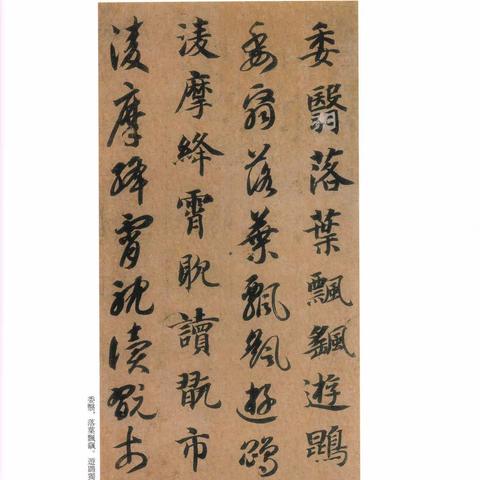 委翳落葉飄颻遊鵾
委翳落葉飄颻遊鵾
淩摩絳霄耽讀翫市
淩摩絳霄耽讀翫市
委翳，落葉飄颻。遊鵾獨